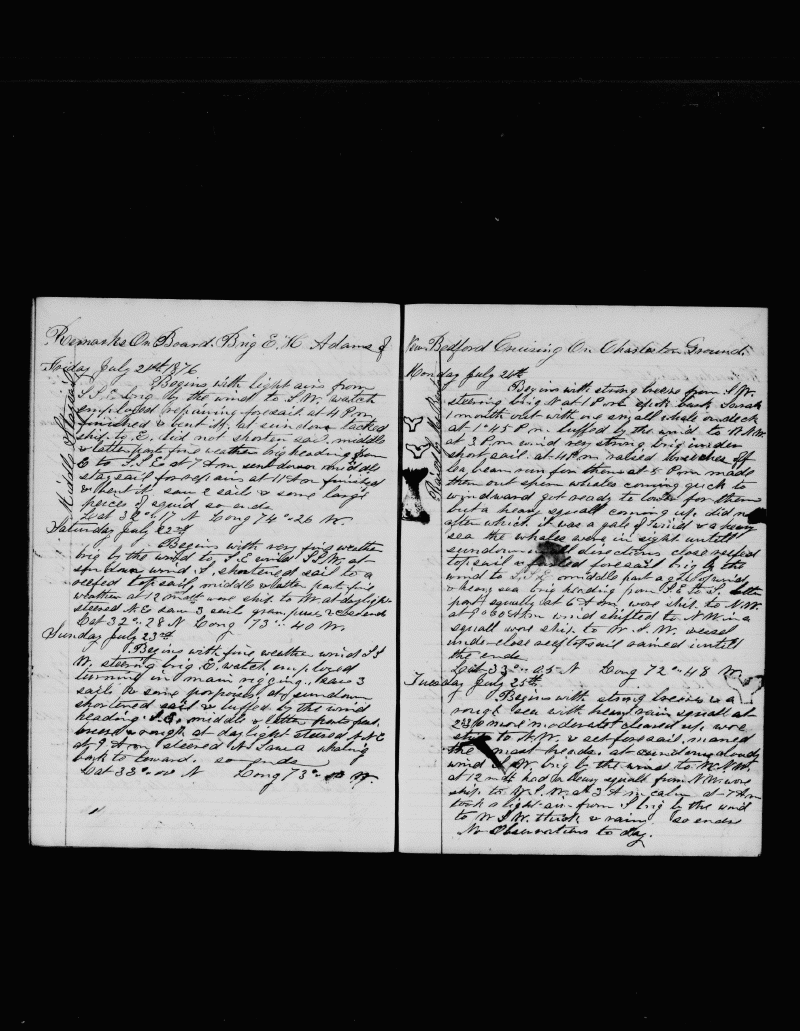 Remarks On Board. Brig E. H. Adams of
Friday July 21st 1876
Begins with light airs from
S.S.E. brig by the wind to S.W. watch
employed repairing foresail at 4 Pm
finished & bent it. at sundown tacked
ship to E. did not shorten sail. middle
& latter part fine weather brig heading from
E to S.S.E. at 7 Am sent down middle
staysail for repairs at 11 Am finished
& bent it. saw 2 sail & some large
peices of squid so ends
Lat 32° 17 N Long 74° 26 W.
Middle Staysail
Saturday July 22nd
Begins with very fine weather
brig by the wind to S.E wind S.S.W. at
sundown wind S. shortened sail to a
reefed topsail, middle & latter part fine
weather at 12 midt wore ship to W. at daylight
steered N.E saw 3 sail
Lat 32° 28 N Long 73° 40 W.
Sunday July 23rd
Begins with fine weather wind S.S.
W. steering brig E. watch employed
turning in main rigging. saw 3
sails & some porpoises. at sundown
shortened sail & luffed by the wind
heading S.E. middle & latter parts fresh
breeze & rough at daylight steered N.N.E
at 9 Am steered N. saw a whaling
bark to leward. so ends
Lat 33° N Long 73° W.
New Bedford Cruising On Charleston Ground.
Monday July 24th
Begins with strong breeze from S.W.
steering brig N at 1 Pm spoke bark Sarah
1 month out with one small whale on deck
at 1° 45 Pm luffed by the wind to W.N.W.
at 3 Pm wind very strong brig under
short sail. at 4 Pm raised breeches off
lea beam run for them at 5 Pm made
them out sperm whales coming quick to
windward got ready to lower for them
but a heavy squall coming up, did not
after which it was a gale of wind & a heavy
sea the whales were in sight untill
sundown directions close reefed
topsail & furled foresail brig by the
wind to S.S.E. middle part a gale of wind
& heavy sea brig heading from S.E to S. latter
part squally at 6 Am wore ship to N.W.
at 7° 30 Am wind shifted to N.W. in a
squall wore ship to W.S.W. vessel
under close reef topsail rained untill
the ends
Lat 33° 05 N Long 72° 48 W
Tuesday July 25th
Begins with strong breeze & a
rough sea with heavy rain squall at
2° 30 Pm more moderate cleared up, wore
ship to N.W. & set foresail. maned
the mast heads. at sundown cloudy
wind S.W. brig by the wind to W.N.W.
at 12 midt had a heavy squall from N.W. wore
ship to W.S.W. at 3 Am calm at 7 Am
took a light air from S brig by the wind
to W.S.W. thick & rainy so ends
No Observations to day.